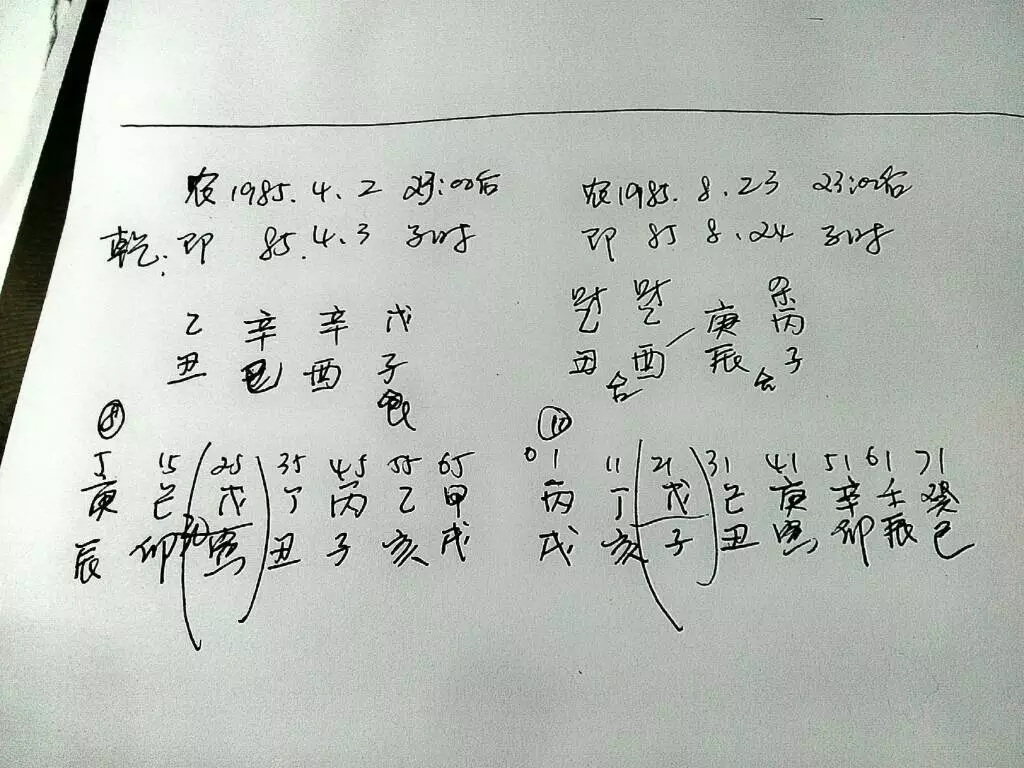 农1985.4.2 23:00后
乾:即 85.4.3 子时
乙 辛 辛 戊
丑 巳 酉 子
5 15 25 35 45 55 65
庚 己 戊 丁 丙 乙 甲
辰 卯 寅 丑 子 亥 戌
农1985.8.23 23:00后
即 85 8.24 子时
财 财 杀
乙 乙 庚 丙
丑 酉 辰 子
合 合
10
0 1 11 21 31 41 51 61 71
丙 丁 戊 己 庚 辛 壬 癸
戌 亥 子 丑 寅 卯 辰 巳